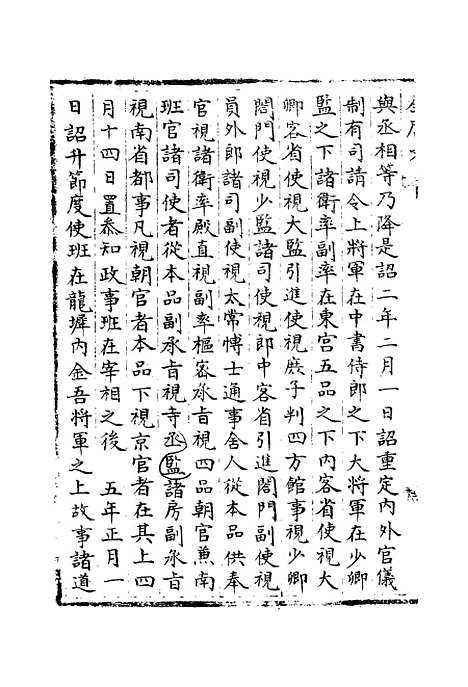 與丞相等乃降是詔二年二月一日詔重定內外官儀
制有司請令上將軍在中書侍郎之下大將軍在少卿
監之下諸衛率副率在東宮五品之下內客省使視大
卿客省使視大監引進使視庻子判四方館事視少卿
閤門使視少監諸司使視郎中客省引進閤門副使視
員外郎諸司副使視太常博士通事舍人從本品供奉
官視諸衛率殿直視副率樞宻承㫖視四品朝官兼南
班官諸司使者從本品副承㫖視寺丞監諸房副承㫖
視南省都事凡視朝官者本品下視京官者在其上四
月十四日置叅知政事班在宰相之後　五年正月一
日詔升節度使班在龍墀內金吾將軍之上故事諸道